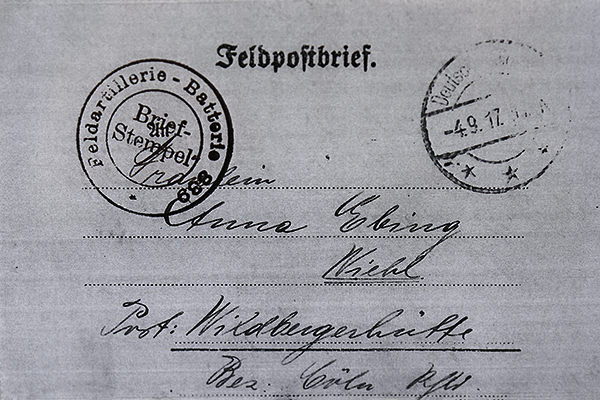 Feldpostbrief.
Feldartillerie-Batterie 688
Brief-
Stempel
Deutsche
-4.9.17.
Fräulein
Anna Ebing
Wiehl
Post: Wildbergerhütte
Bez. Cöln